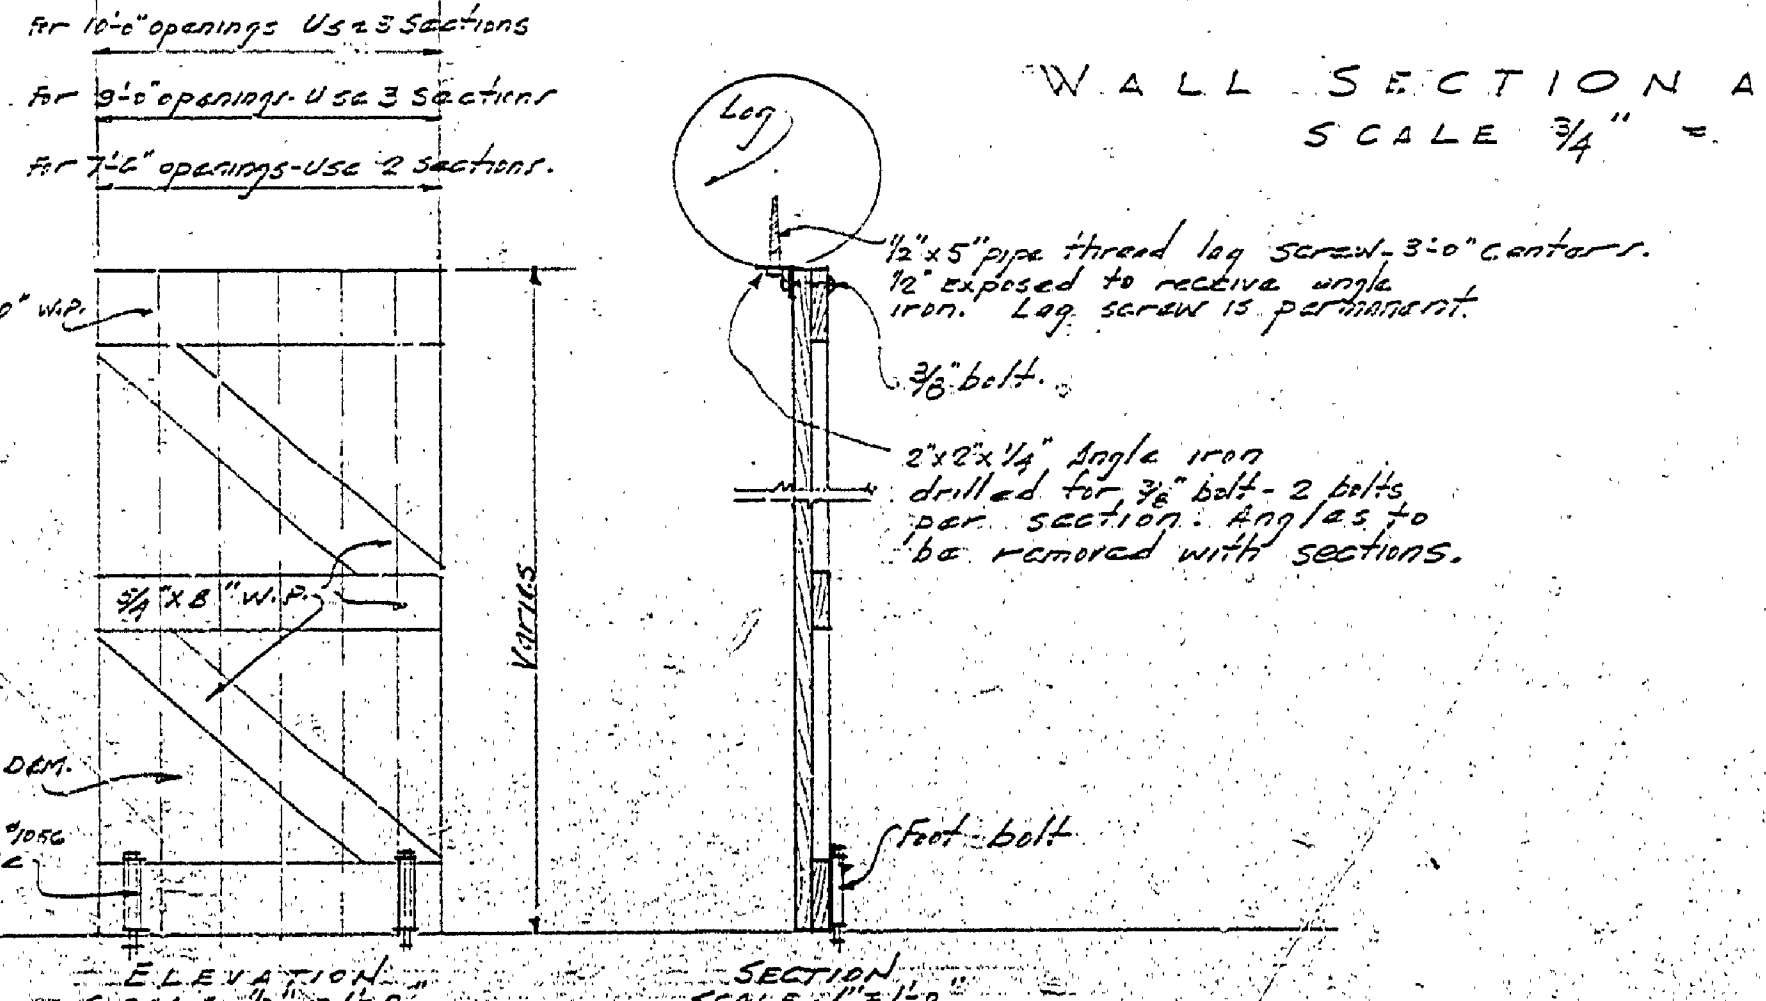 For 10'-0" openings Use 3 Sections
For 9'-0" openings - Use 3 Sections
For 7'-6" openings - Use 2 Sections.
WALL SECTION A
SCALE 3/4" =
Log
1/2" x 5" pipe thread lag screw - 3'-0" Centers.
1/2" exposed to receive angle
iron. Lag screw is permanent.
0" W.P.
3/8" bolt.
2" x 2" x 1/4" Angle iron
drilled for 3/8" bolt - 2 bolts
per section. Angles to
be removed with sections.
5/4" X 8" W.P.
Varies
D&M.
#1056
Foot bolt
ELEVATION
SECTION
SCALE 1" = 1'-0"